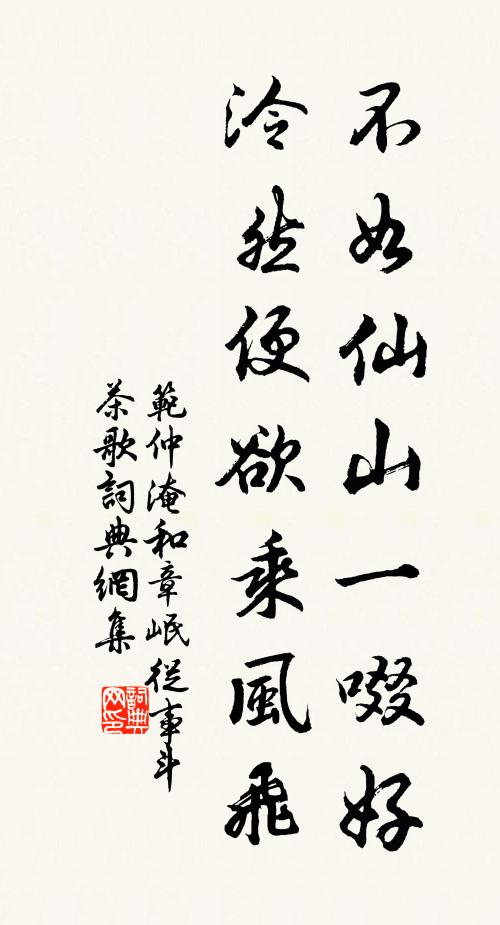 不如仙山一啜好
泠然便欲乘風飛
範仲淹和章岷從事斗
茶歌詞典網集
詞典網印